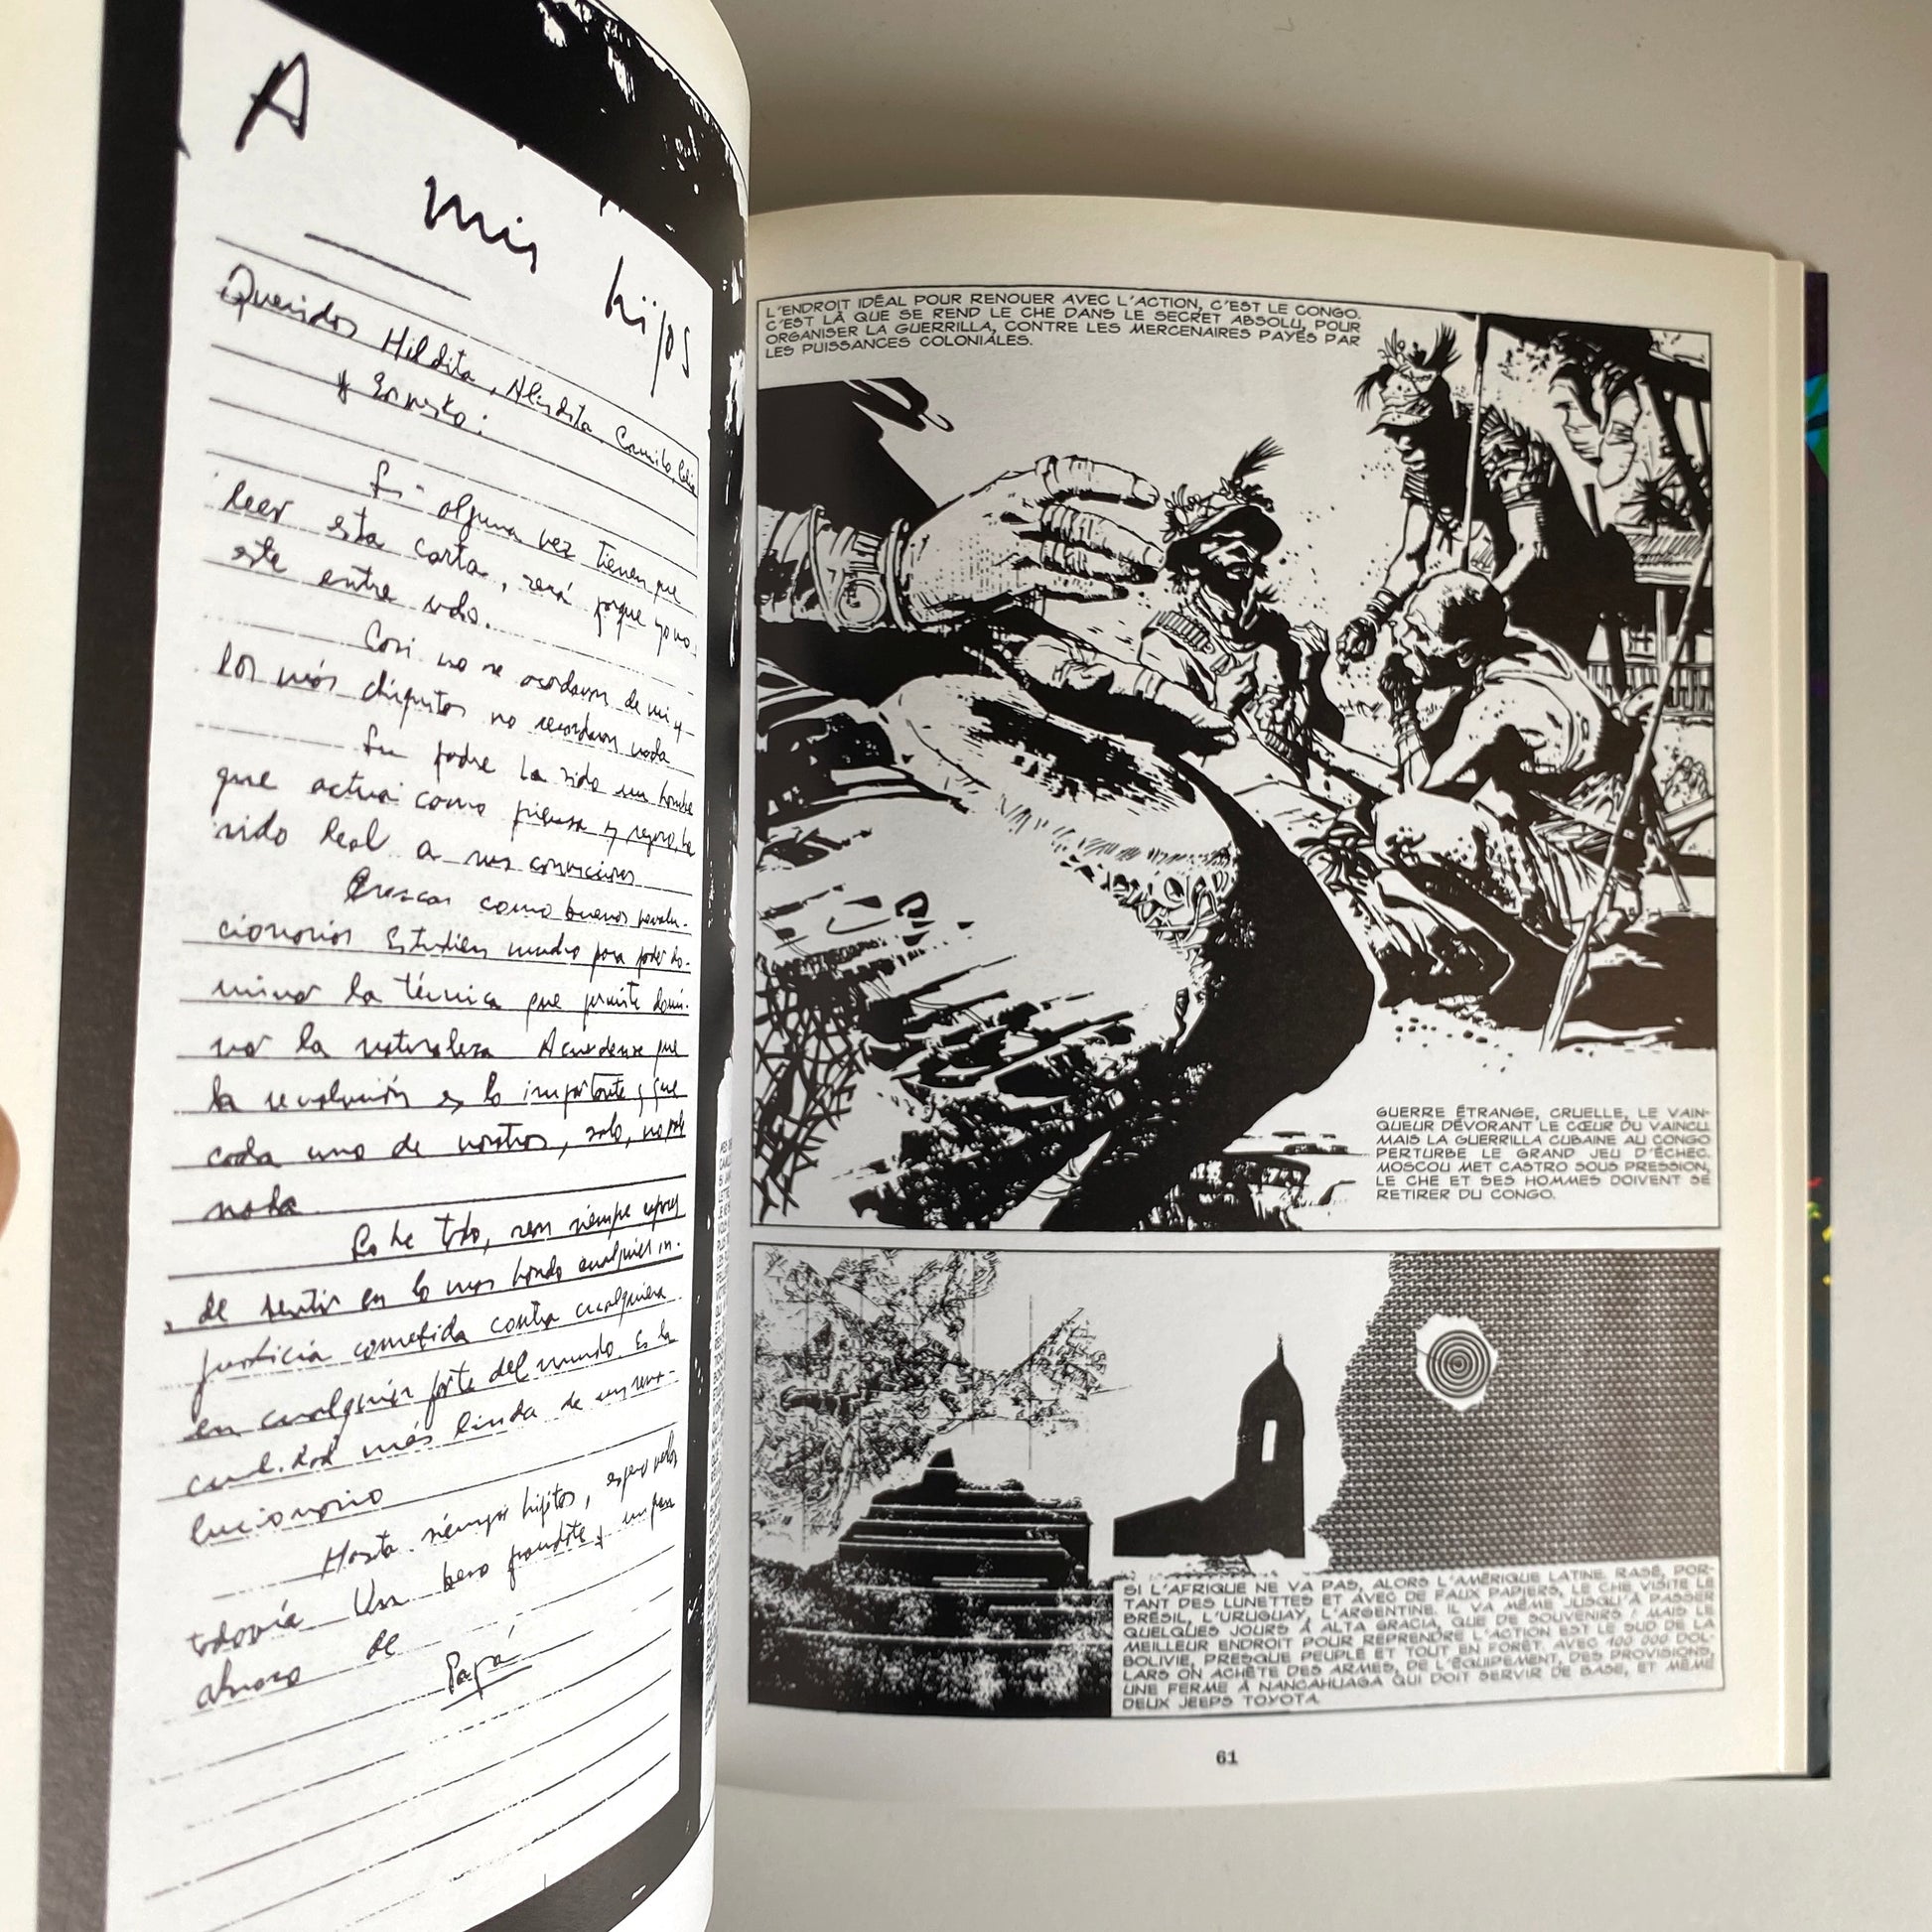 A
mis
hijos
Queridos Hildita, Aleidita, Camilo, Celia
y Ernesto:
Si alguna vez tienen que
leer esta carta, será porque yo no
esté entre uds.
Casi no se acordaran de mi y
los más chiquitos no recordaran nada
Su padre ha sido un hombre
que actua como piensa y, seguro, ha
sido leal a sus convicciones
Crezcan como buenos revolu-
cionarios Estudien mucho para poder do-
minar la técnica que permite domi-
nar la naturaleza Acuerdense que
la revolución es lo importante y que
cada uno de nosotros, solo, no vale
nada.
Sobre todo, sean siempre capaces
de sentir en lo mas hondo cualquier in-
justicia cometida contra cualquiera
en cualquier parte del mundo. Es la
cualidad más linda de un revo-
lucionario
Hasta siempre hijitos, espero verlos
todavía Un beso grandote y un gran
abrazo de
Papá
L'ENDROIT IDÉAL POUR RENOUER AVEC L'ACTION, C'EST LE CONGO.
C'EST LÀ QUE SE REND LE CHE DANS LE SECRET ABSOLU, POUR
ORGANISER LA GUERRILLA, CONTRE LES MERCENAIRES PAYÉS PAR
LES PUISSANCES COLONIALES.
GUERRE ÉTRANGE, CRUELLE, LE VAIN-
QUEUR DÉVORANT LE CŒUR DU VAINCU.
MAIS LA GUERRILLA CUBAINE AU CONGO
PERTURBE LE GRAND JEU D'ÉCHEC.
MOSCOU MET CASTRO SOUS PRESSION,
LE CHE ET SES HOMMES DOIVENT SE
RETIRER DU CONGO.
SI L'AFRIQUE NE VA PAS, ALORS L'AMÉRIQUE LATINE. RASÉ, POR-
TANT DES LUNETTES ET AVEC DE FAUX PAPIERS, LE CHE VISITE LE
BRÉSIL, L'URUGUAY, L'ARGENTINE. IL VA MÊME JUSQU'À PASSER
QUELQUES JOURS À ALTA GRACIA, QUE DE SOUVENIRS ! MAIS LE
MEILLEUR ENDROIT POUR REPRENDRE L'ACTION EST LE SUD DE LA
BOLIVIE, PRESQUE PEUPLÉ ET TOUT EN FORÊT. AVEC 100 000 DOL-
LARS ON ACHÈTE DES ARMES, DE L'ÉQUIPEMENT, DES PROVISIONS,
UNE FERME À NANCAHUAGA QUI DOIT SERVIR DE BASE, ET MÊME
DEUX JEEPS TOYOTA.
61